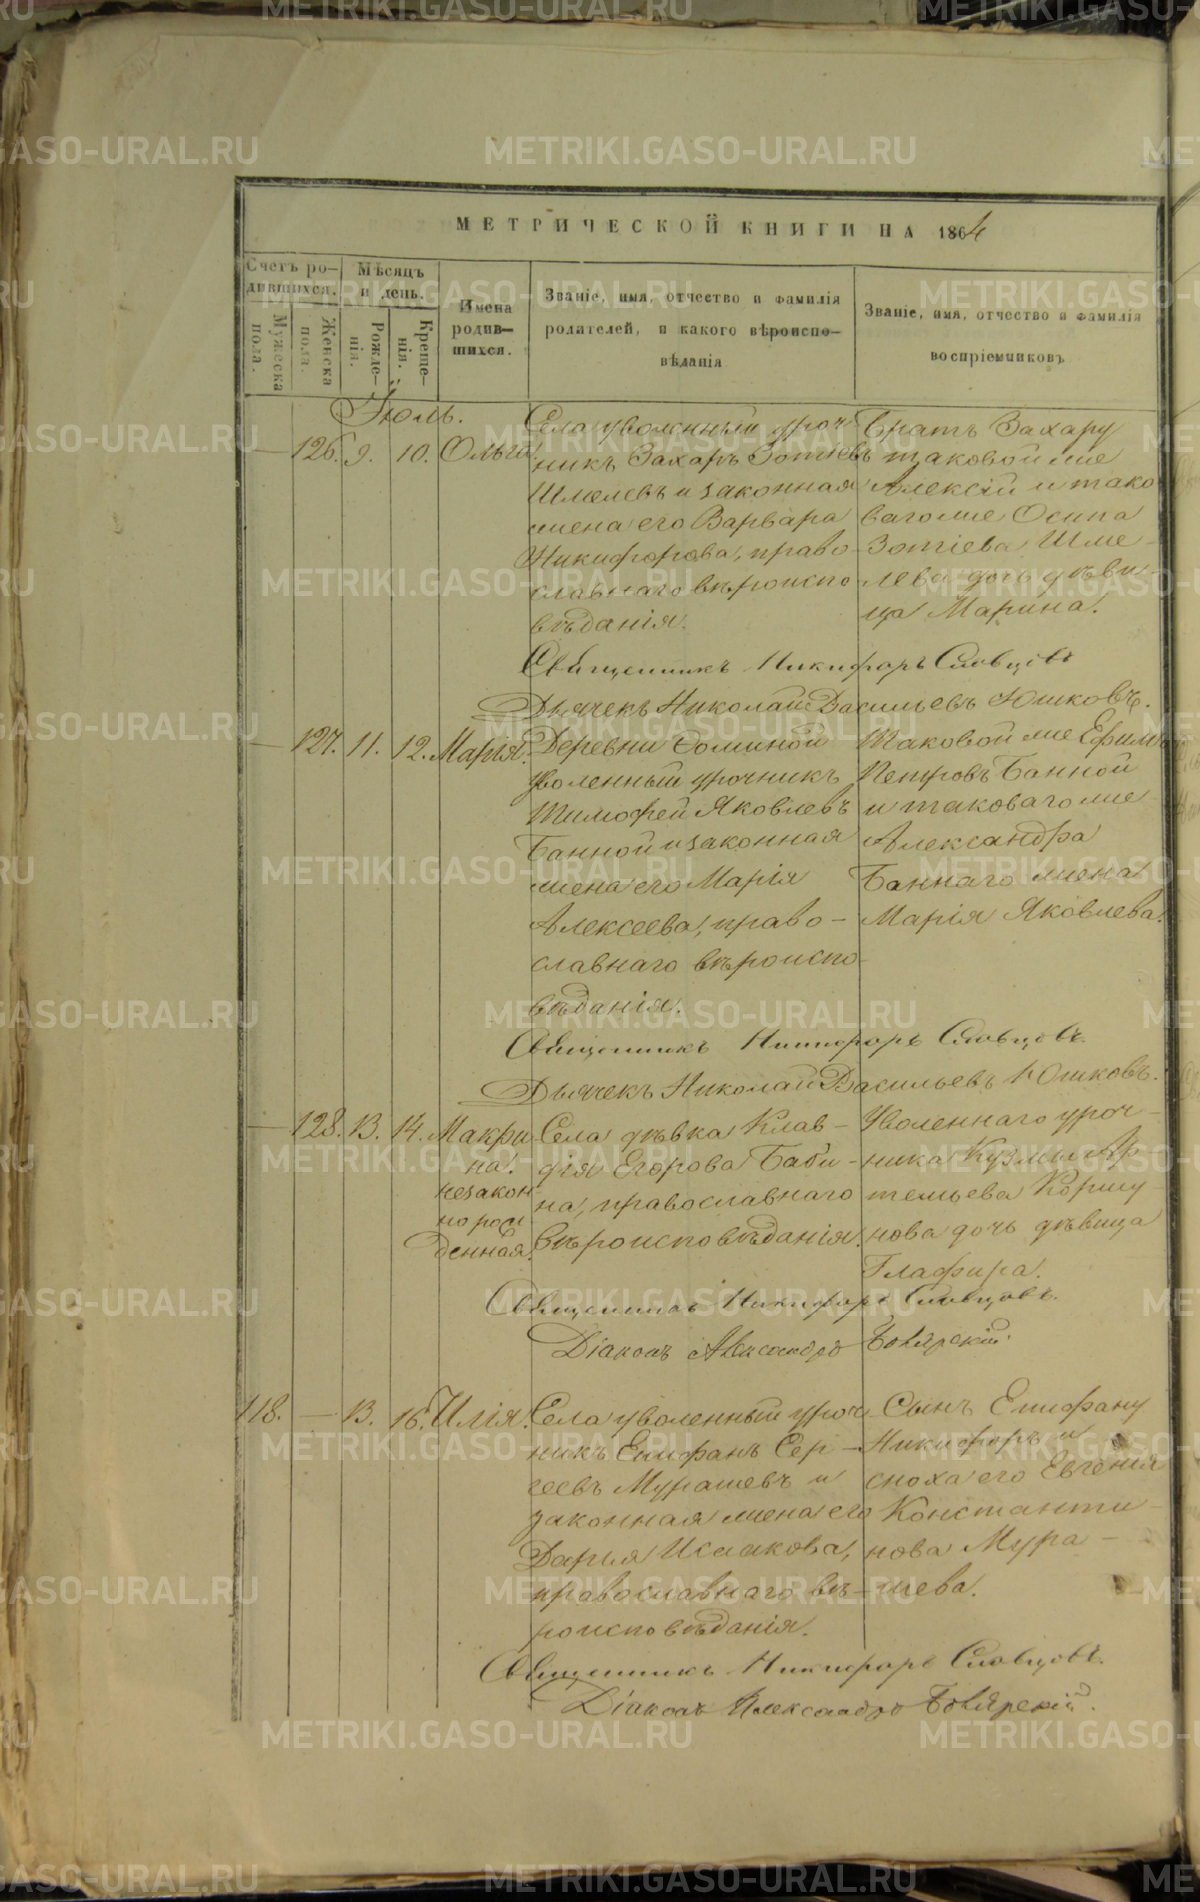 МЕТРИЧЕСКОЙ КНИГИ НА 1864
Счетъ ро-
дившихся.
Мѣсяцъ
и день.
Имена
родив-
шихся.
Званіе, имя, отчество и фамилія
родителей, и какого вѣроиспо-
вѣданія
Званіе, имя, отчество и фамилія
воспріемниковъ
Мужеска
пола.
Женска
пола.
Рожде-
нія.
Креще-
нія.
Іюль.
126. 9. 10. Ольга.
Села уволенный уроч-
никъ Захаръ Зотіевъ
Шмелевъ и законная
жена его Варвара
Никифорова, право-
славнаго вѣроиспо-
вѣданія.
Братъ Захару
таковой же
Алексій и тако
ваго же Осипа
Зотіева Шме-
лева дочь дѣви-
ца Марина.
Священникъ Никифоръ Словцовъ
Дьячекъ Николай Васильевъ Юшковъ.
127. 11. 12. Марія.
Деревни Соминой
уволенный урочникъ
Тимофей Яковлевъ
Банной и законная
жена его Марія
Алексеева, право-
славнаго вѣроиспо-
вѣданія.
Таковой же Ефимъ
Петровъ Банной
и таковаго же
Александра
Баннаго жена
Марія Яковлева.
Священникъ Никифоръ Словцовъ.
Дьячекъ Николай Васильевъ Юшковъ.
128. 13. 14. Макри
на.
незакон
норож
денная.
Села дѣвка Клав-
дія Егорова Баби-
на, православнаго
вѣроисповѣданія.
Уволеннаго уроч-
ника Кузмы Ар-
темьева Коршу-
нова дочь дѣвица
Глафира.
Священникъ Никифоръ Словцовъ.
Діаконъ Александръ Боярскій.
118. — 13. 16. Илія.
Села уволенный уроч-
никъ Епифанъ Сер-
геевъ Мурашевъ и
законная жена его
Дарья Исаакова,
православнаго вѣ-
роисповѣданія.
Сынъ Епифану
Никифоръ и
сноха его Евгенія
Константи-
нова Мура-
шева.
Священникъ Никифоръ Словцовъ.
Діаконъ Александръ Боярскій.
METRIKI.GASO-URAL.RU